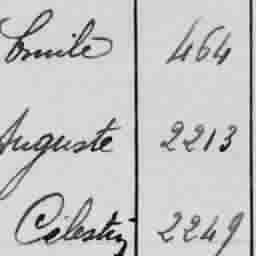 Emile 464
Auguste 2213
Célestin 2249